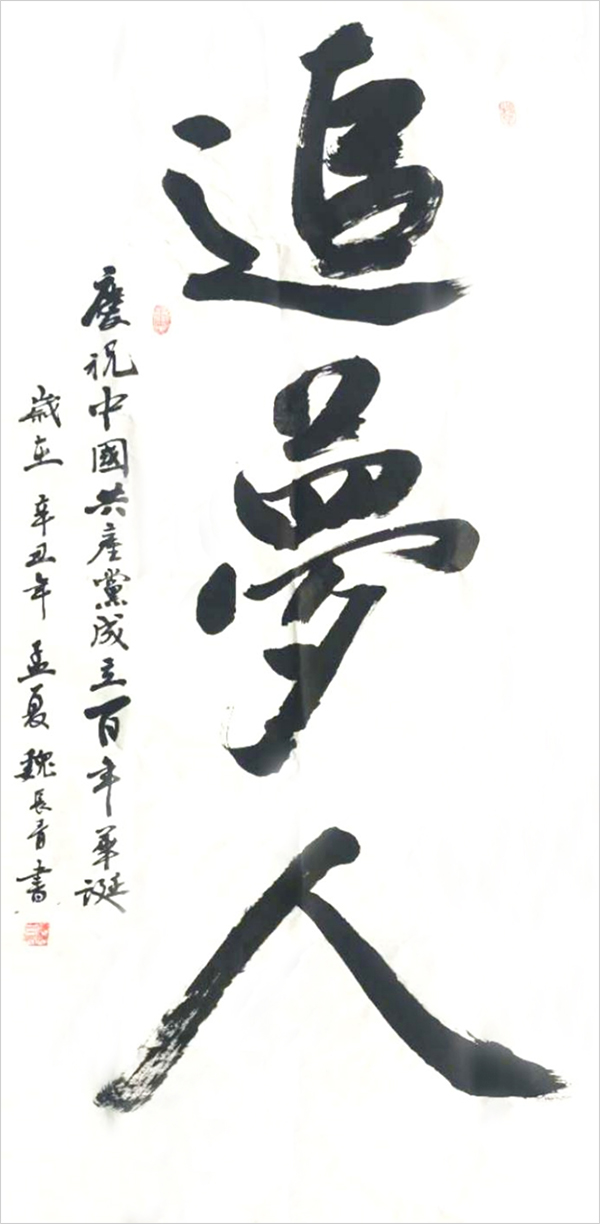 追夢人
慶祝中國共產黨成立百年華誕
歲在辛丑年孟夏魏長青書